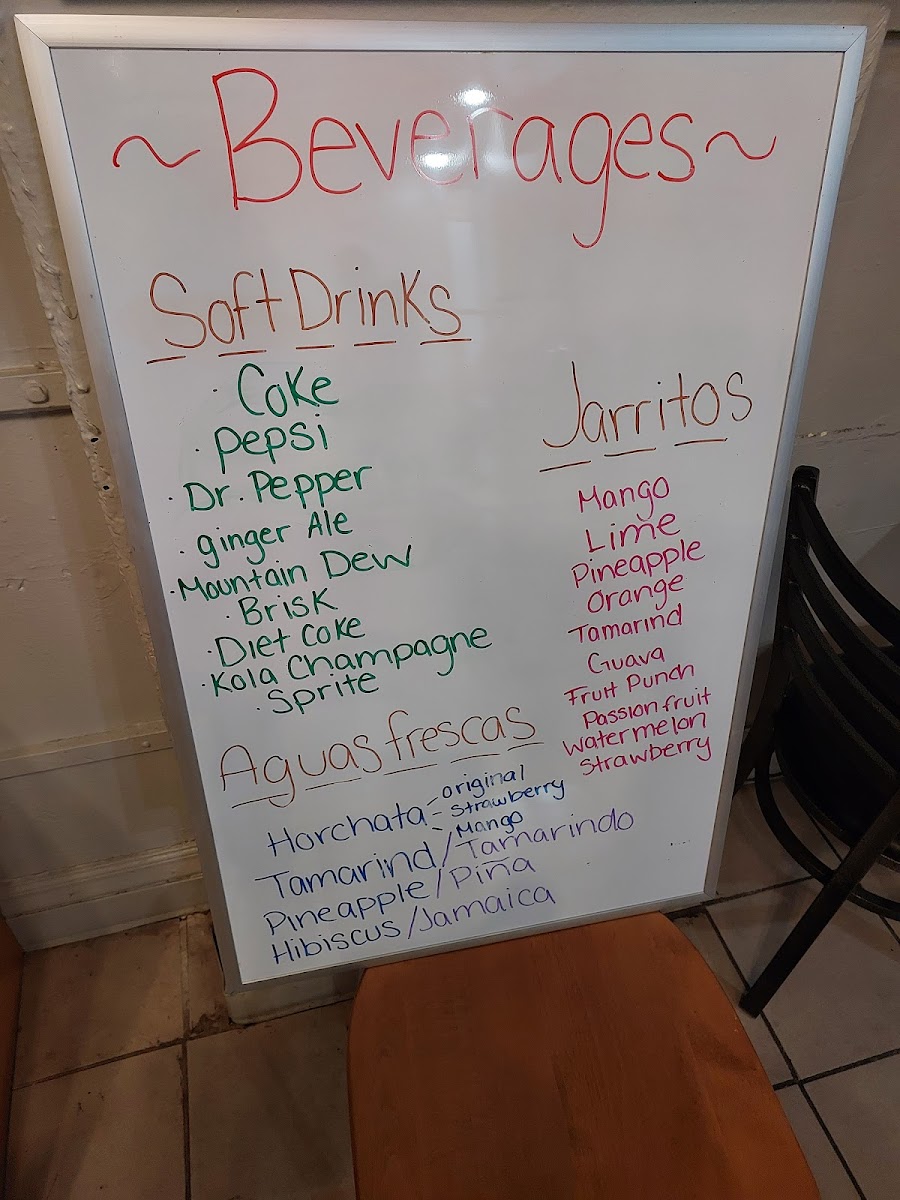 ~Beverages~
Soft Drinks
· Coke
· Pepsi
· Dr. Pepper
· ginger Ale
· Mountain Dew
· Brisk
· Diet Coke
· Kola Champagne
· Sprite
Jarritos
Mango
Lime
Pineapple
Orange
Tamarind
Guava
Fruit Punch
Passion fruit
Watermelon
Strawberry
Aguas frescas
Horchata - original
- Strawberry
- Mango
Tamarind/Tamarindo
Pineapple/Piña
Hibiscus/Jamaica